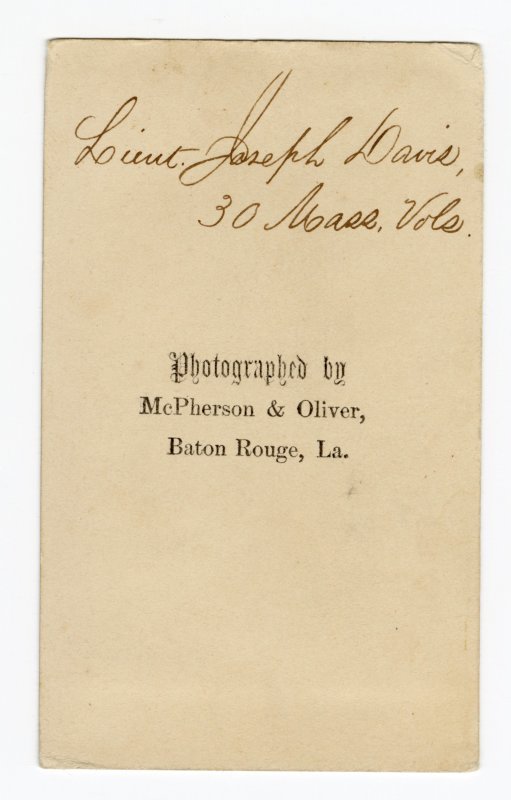 Lieut. Joseph Davis,
30 Mass. Vols.
Photographed by
McPherson & Oliver,
Baton Rouge, La.